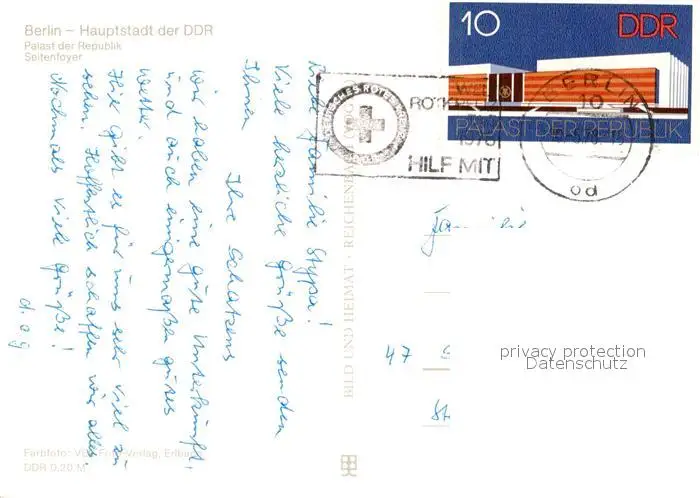 Berlin – Hauptstadt der DDR
Palast der Republik
Seitenfoyer
Liebe Familie Stypa!
Viele herzliche Grüße senden
Ihnen
Ihre Schatzens
Wir haben eine gute Unterkunft
und auch einigermaßen gutes
Wetter.
Hier gibt es für uns sehr viel zu
sehen. Hoffentlich schaffen wir alles
Nochmals viele Grüße!
d. o g
Farbfoto: Verlag, Erlbach
DDR 0,20 M
BILD UND HEIMAT · REICHENBACH
10 DDR
PALAST DER REPUBLIK
DEUTSCHES ROTES KREUZ
DDR
HILF MIT
BERLIN
10
od
Familie
47
privacy protection
Datenschutz